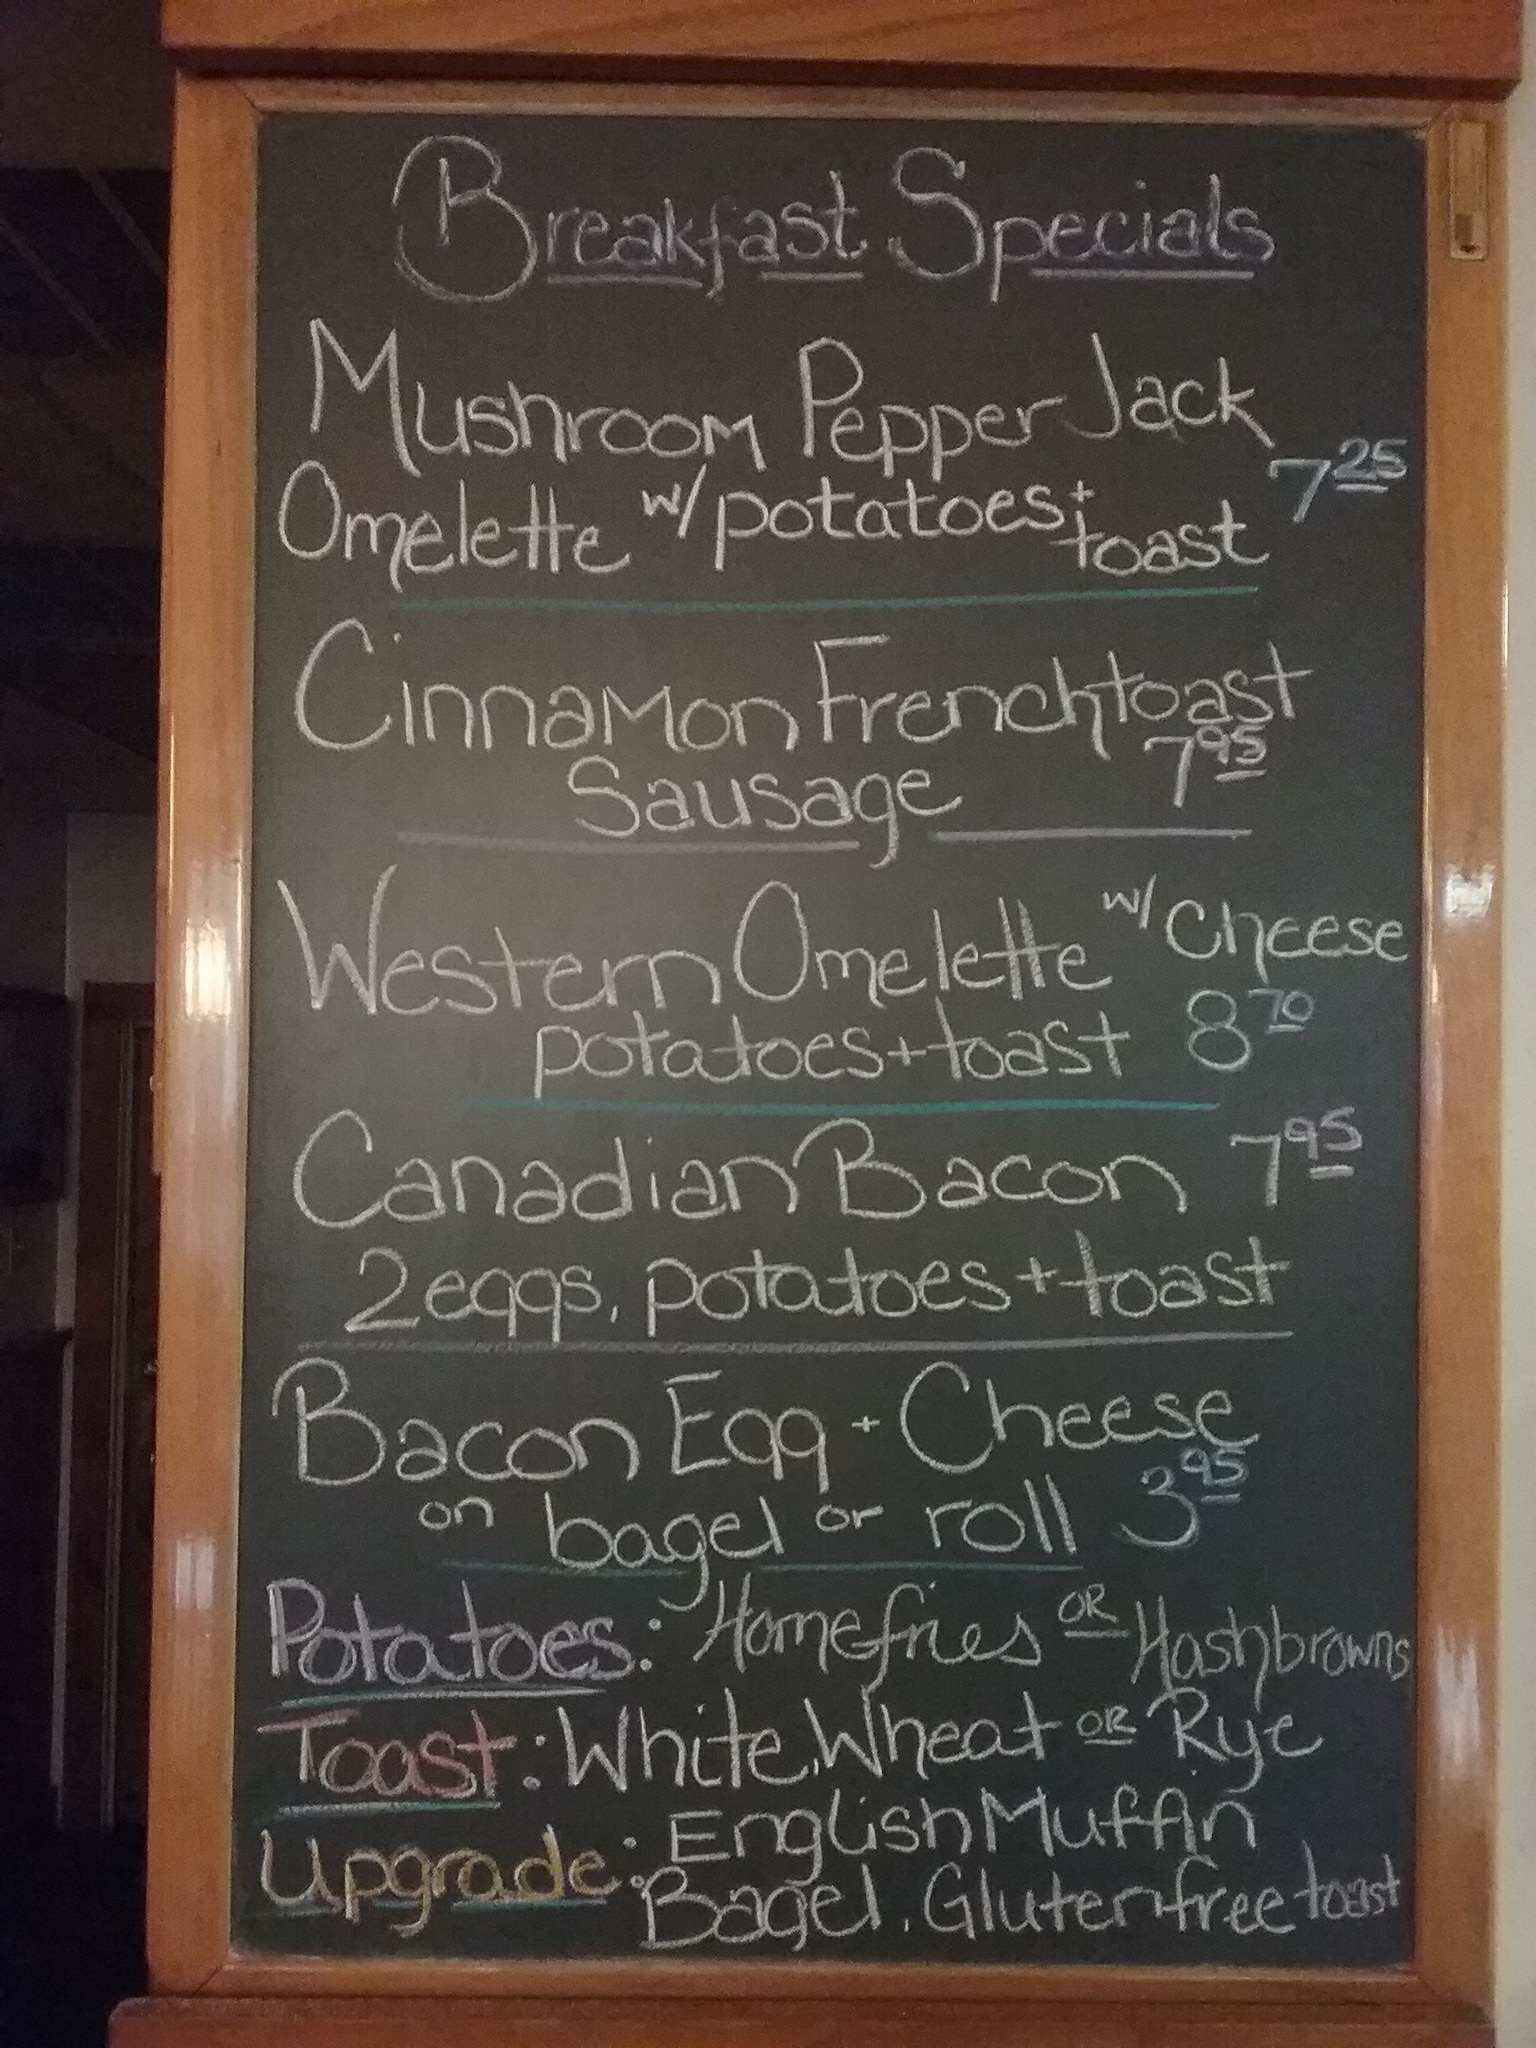 Breakfast Specials
Mushroom Pepper Jack
Omelette w/ potatoes + toast 7.25
Cinnamon French toast
Sausage 7.95
Western Omelette w/ Cheese
potatoes + toast 8.70
Canadian Bacon 7.95
2 eggs, potatoes + toast
Bacon Egg + Cheese
on bagel or roll 3.95
Potatoes: Homefries OR Hashbrowns
Toast: White, Wheat OR Rye
Upgrade: English Muffin
Bagel, Gluten free toast